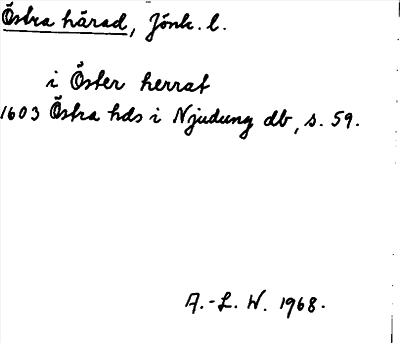 Östra härad, Jönk. l.
i Öster herrat
1603 Östra hds i Njudung db, s. 59.
A.-L. W. 1968.